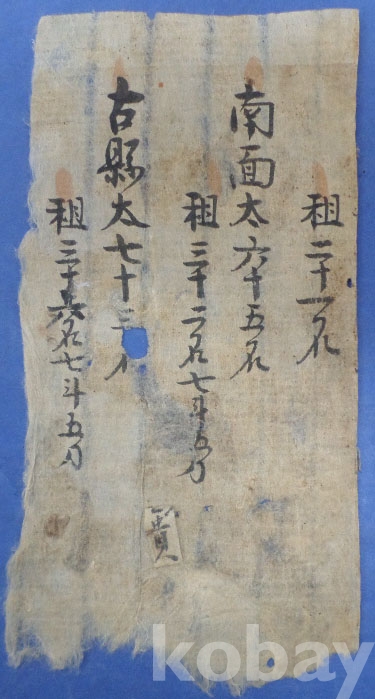 租二十一石
南面太六十五石
租三十二石七斗五刀
古縣太七十三
租三十六石七斗五刀
kobay